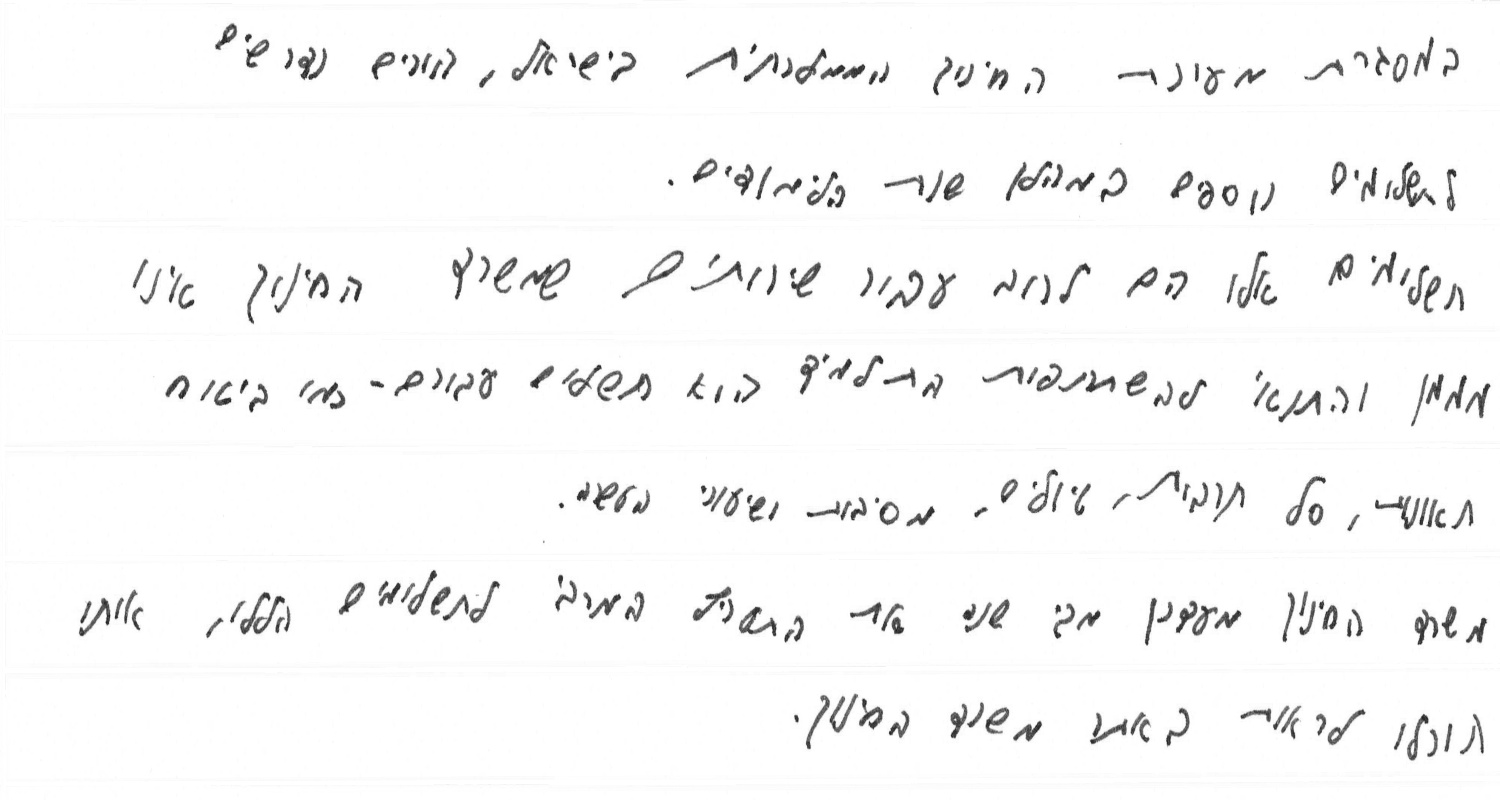 במסגרת מערכת החינוך הממלכתית בישראל, הורים נדרשים
לתשלומים נוספים במהלך שנת הלימודים.
תשלומים אלו הם לרוב עבור שירותים שמשרד החינוך אינו
מממן והתנאי להשתתפות התלמיד הוא תשלום עבורם - כמו ביטוח
תאונות, סל תרבות, טיולים, מסיבות ושיעורי העשרה.
משרד החינוך מעדכן מדי שנה את התעריף המרבי לתשלומים הללו, אותו
תוכלו לראות באתר משרד החינוך.